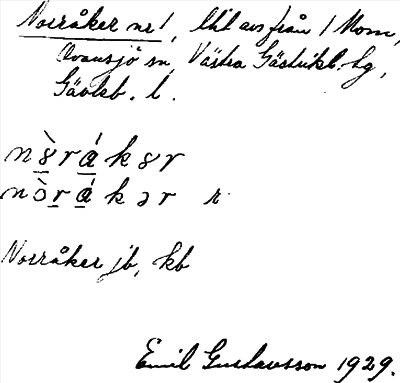 Norråker nr 1, lht avs från 1 Mom,
Ovansjö sn, Västra Gästrikl. hg,
Gävleb. l.
Norråker jb, kb
Emil Gustavsson 1929.